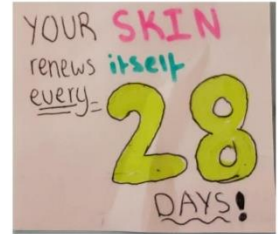 YOUR SKIN
renews itself
every
28
DAYS!